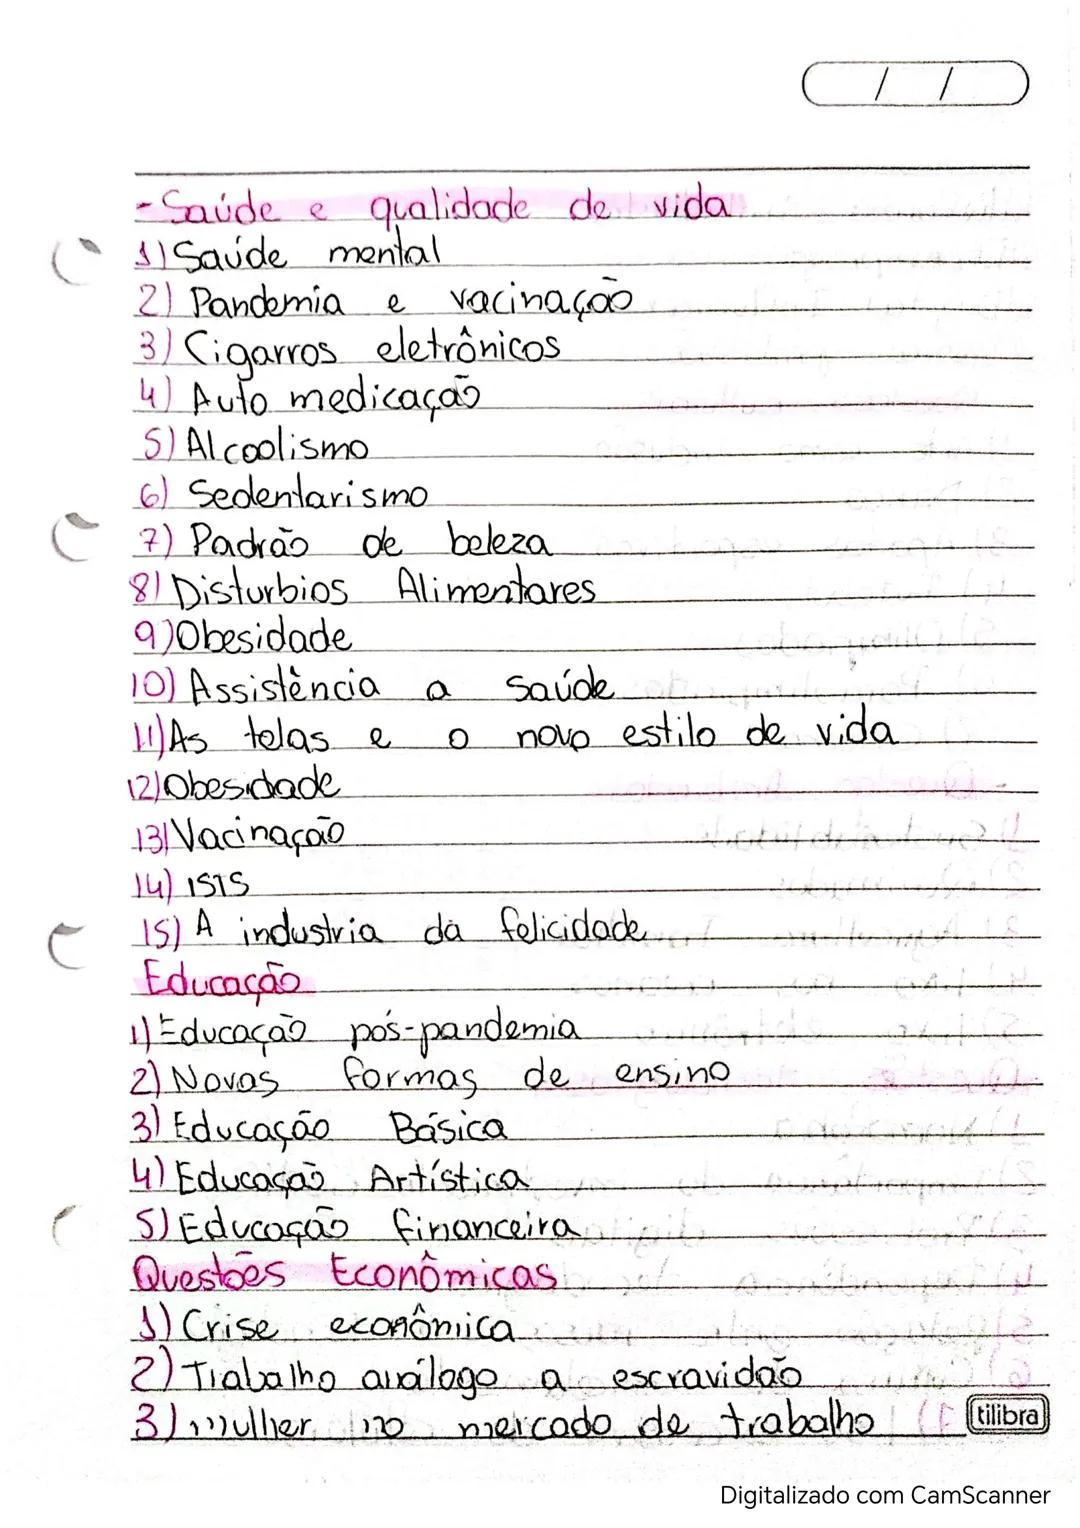 / /
- Saúde e qualidade de vida
1) Saúde mental
2) Pandemia e vacinação
3) Cigarros eletrônicos
4) Auto medicação
5) Alcoolismo
6) Sedentarismo
7) Padrão de beleza
8) Disturbios Alimentares
9) Obesidade
10) Assistência a saúde
11) As telas e o novo estilo de vida
12) Obesidade
13) Vacinação
14) ISTS
15) A industria da felicidade
Educação
1) Educação pós-pandemia
2) Novas formas de ensino
3) Educação Básica
4) Educação Artística
5) Educação financeira
Questões Econômicas
1) Crise econômica
2) Trabalho análogo a escravidão
3) mulher no mercado de trabalho
tilibra
Digitalizado com CamScanner